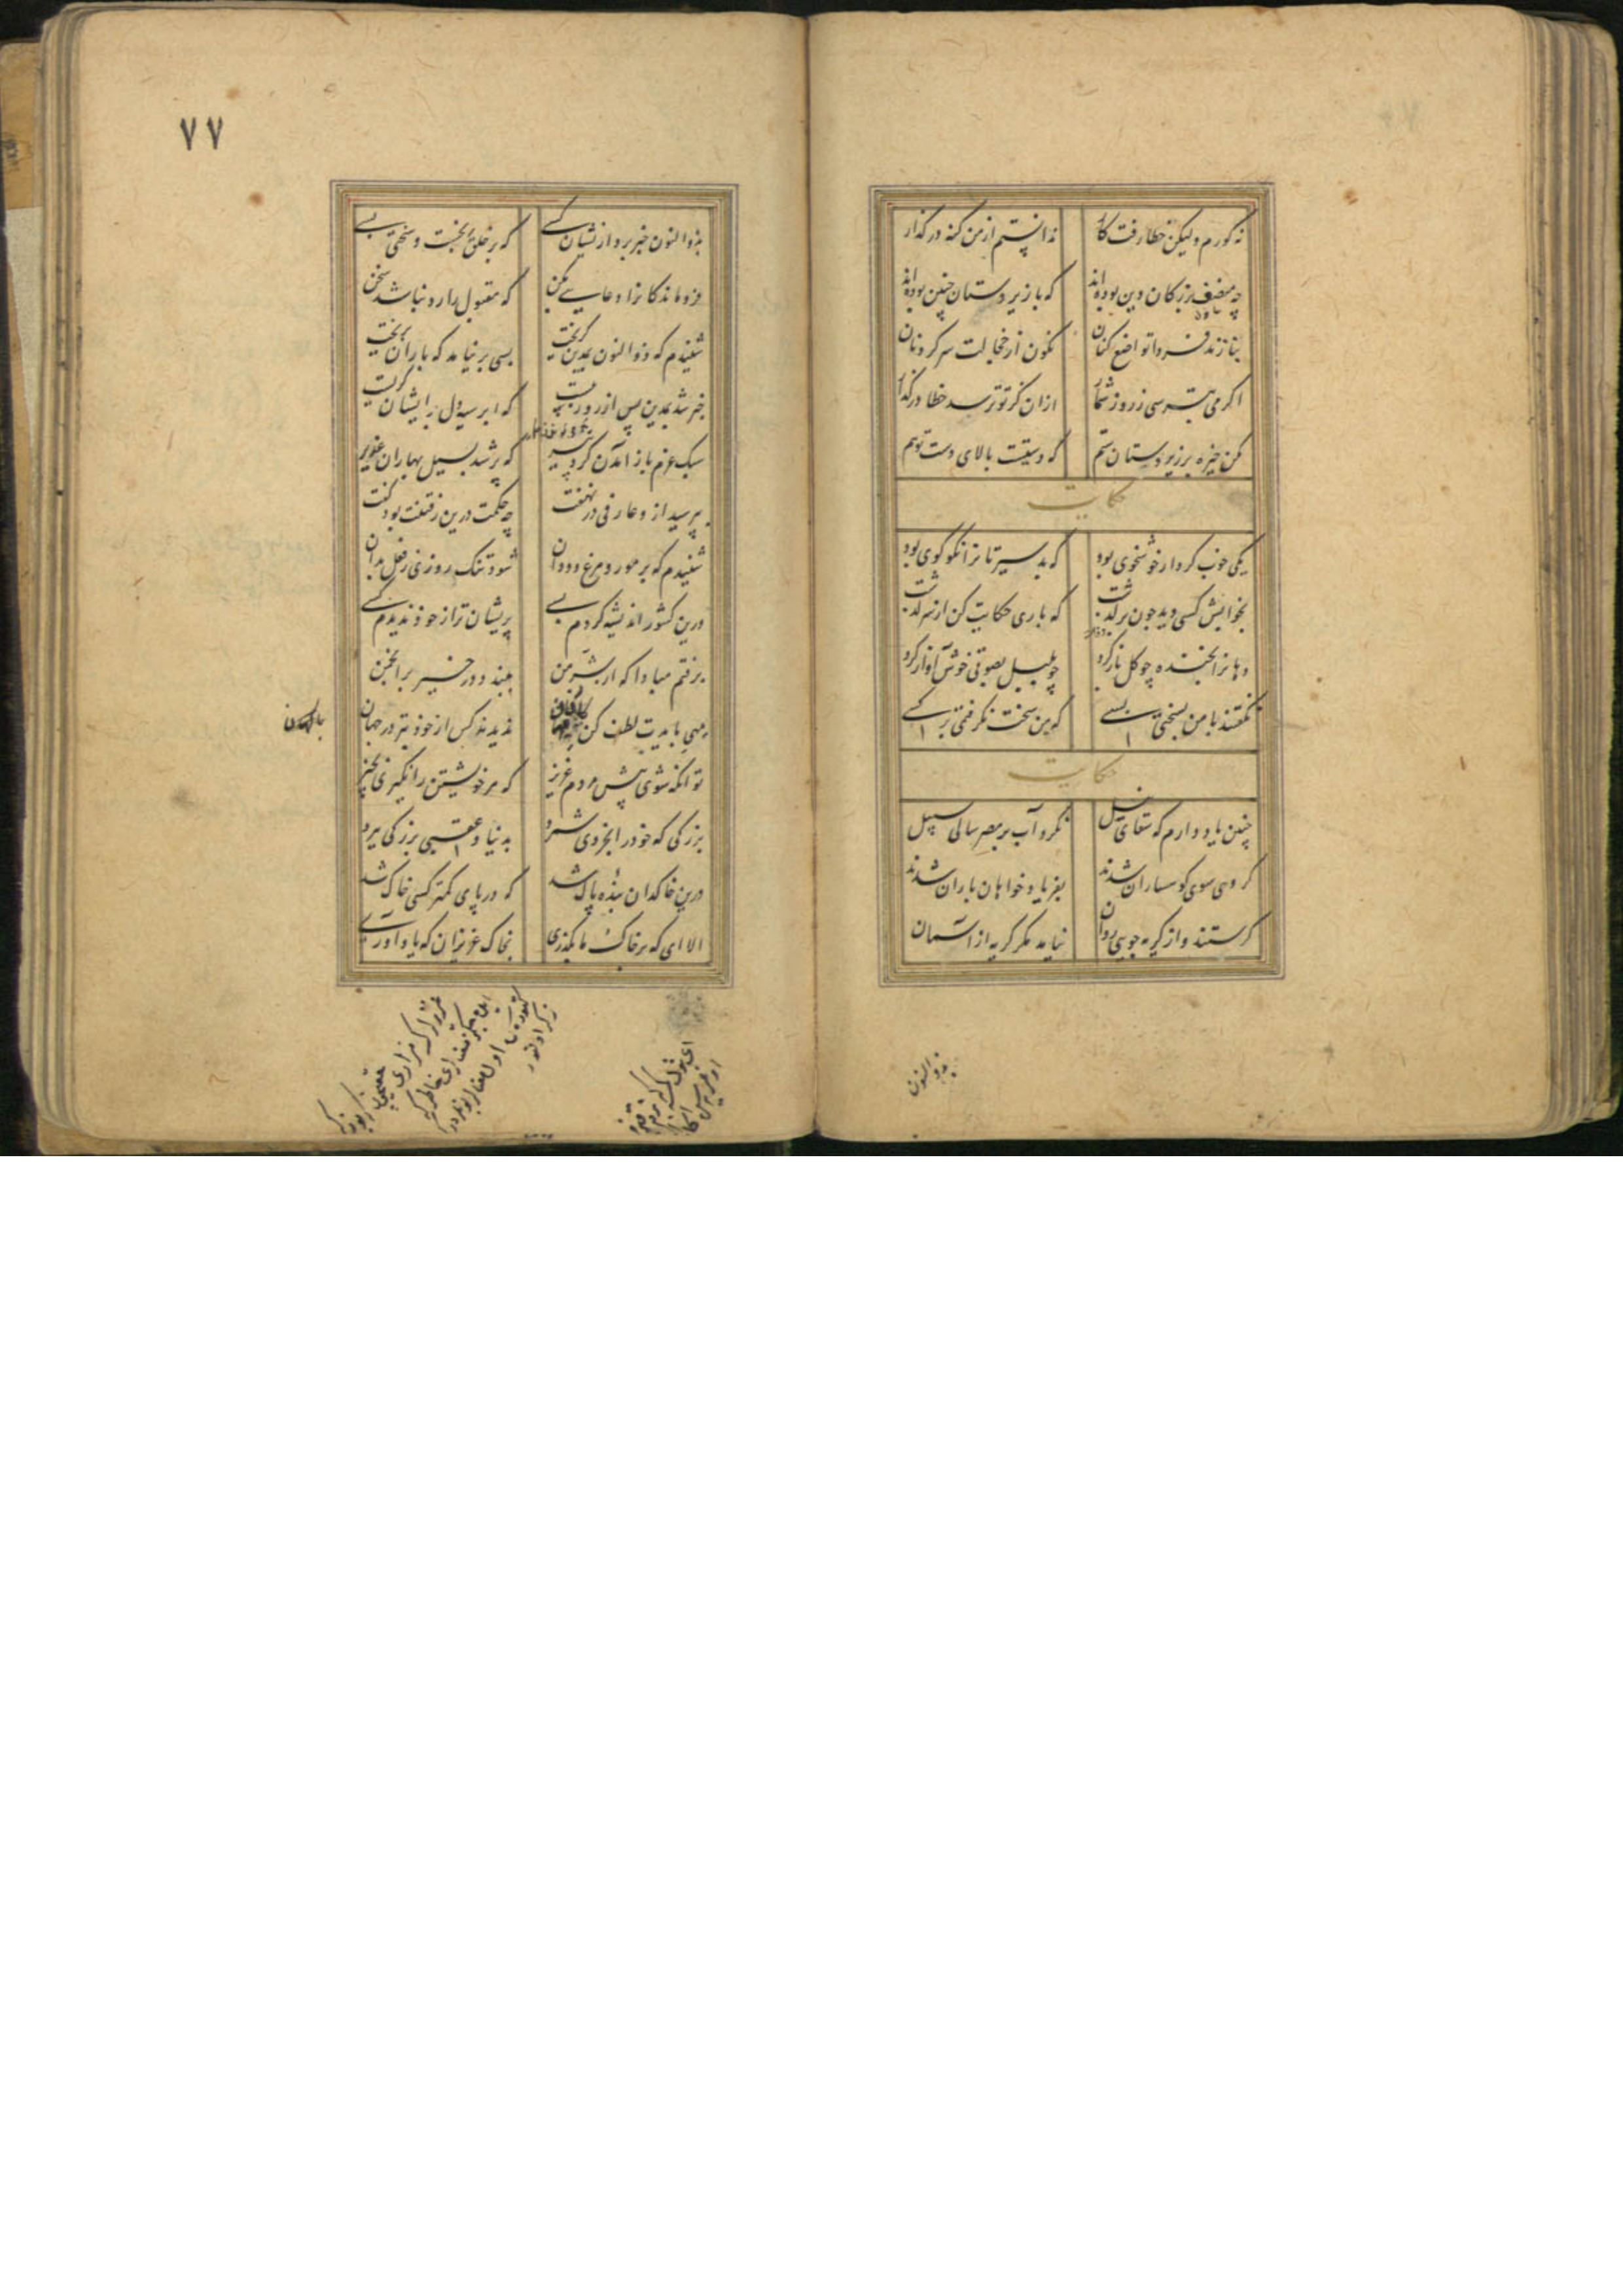 نه کورم ولیکن خطا رفت کار ندانستم از من گنه در گذار
چه منصف بزرگان دین بوده‌اند که با زیردستان چنین بوده‌اند
بنازند فردا تواضع کنان نگون از خجالت سر گردنان
اگر می بترسی ز روز شمار ازان کز تو ترسد خطا در گذار
مکن خیره بر زیردستان ستم که دستیست بالای دست تو هم
حکایت
یکی خوب کردار خوشخوی بود که بد سیرتانرا نکو گوی بود
بخوابش کسی دید چون در گذشت که باری حکایت کن از سرگذشت
دهانرا بخنده چو گل باز کرد چو بلبل بصوتی خوش آواز کرد
نگفتند با من بسختی بسی که من سخت نگرفتمی بر کسی
حکایت
چنین یاد دارم که سقای نیل نکرد آب بر مصر سالی سبیل
گروهی سوی کوهساران شدند بفریاد خواهان باران شدند
گرستند و از گریه جویی روان نیامد مگر گریه از آسمان
بذوالنون
۷۷
بذوالنون خبر برد ازیشان کسی که بر خلق رنجست و سختی بسی
فروماندگانرا دعایی بکن که مقبول را رد نباشد سخن
شنیدم که ذوالنون بمدین گریخت بسی بر نیامد که باران بریخت
خبر شد بمدین پس از روز بیست که ابر سیه دل بر ایشان گریست
سبک عزم باز آمدن کرد پیر که پر شد بسیل بهاران غدیر
بپرسید ازو عارفی در نهفت چه حکمت درین رفتنت بود گفت
شنیدم که بر مور و مرغ و ددان شود تنگ روزی ز فعل بدان
درین کشور اندیشه کردم بسی پریشان‌تر از خود ندیدم کسی
برفتم مبادا که از شر من ببندد در خیر بر انجمن
بهی بایدت لطف کن کان بهان ندیدند کس از خود بتر در جهان
تو آنگه شوی پیش مردم عزیز که مر خویشتن را نگیری بچیز
بزرگی که خود را بخردی شمرد بدنیا و عقبی بزرگی ببرد
درین خاکدان بنده پاک شد که در پای کمتر کسی خاک شد
الا ای که بر خاک ما بگذری بخاک عزیزان که یاد آوری